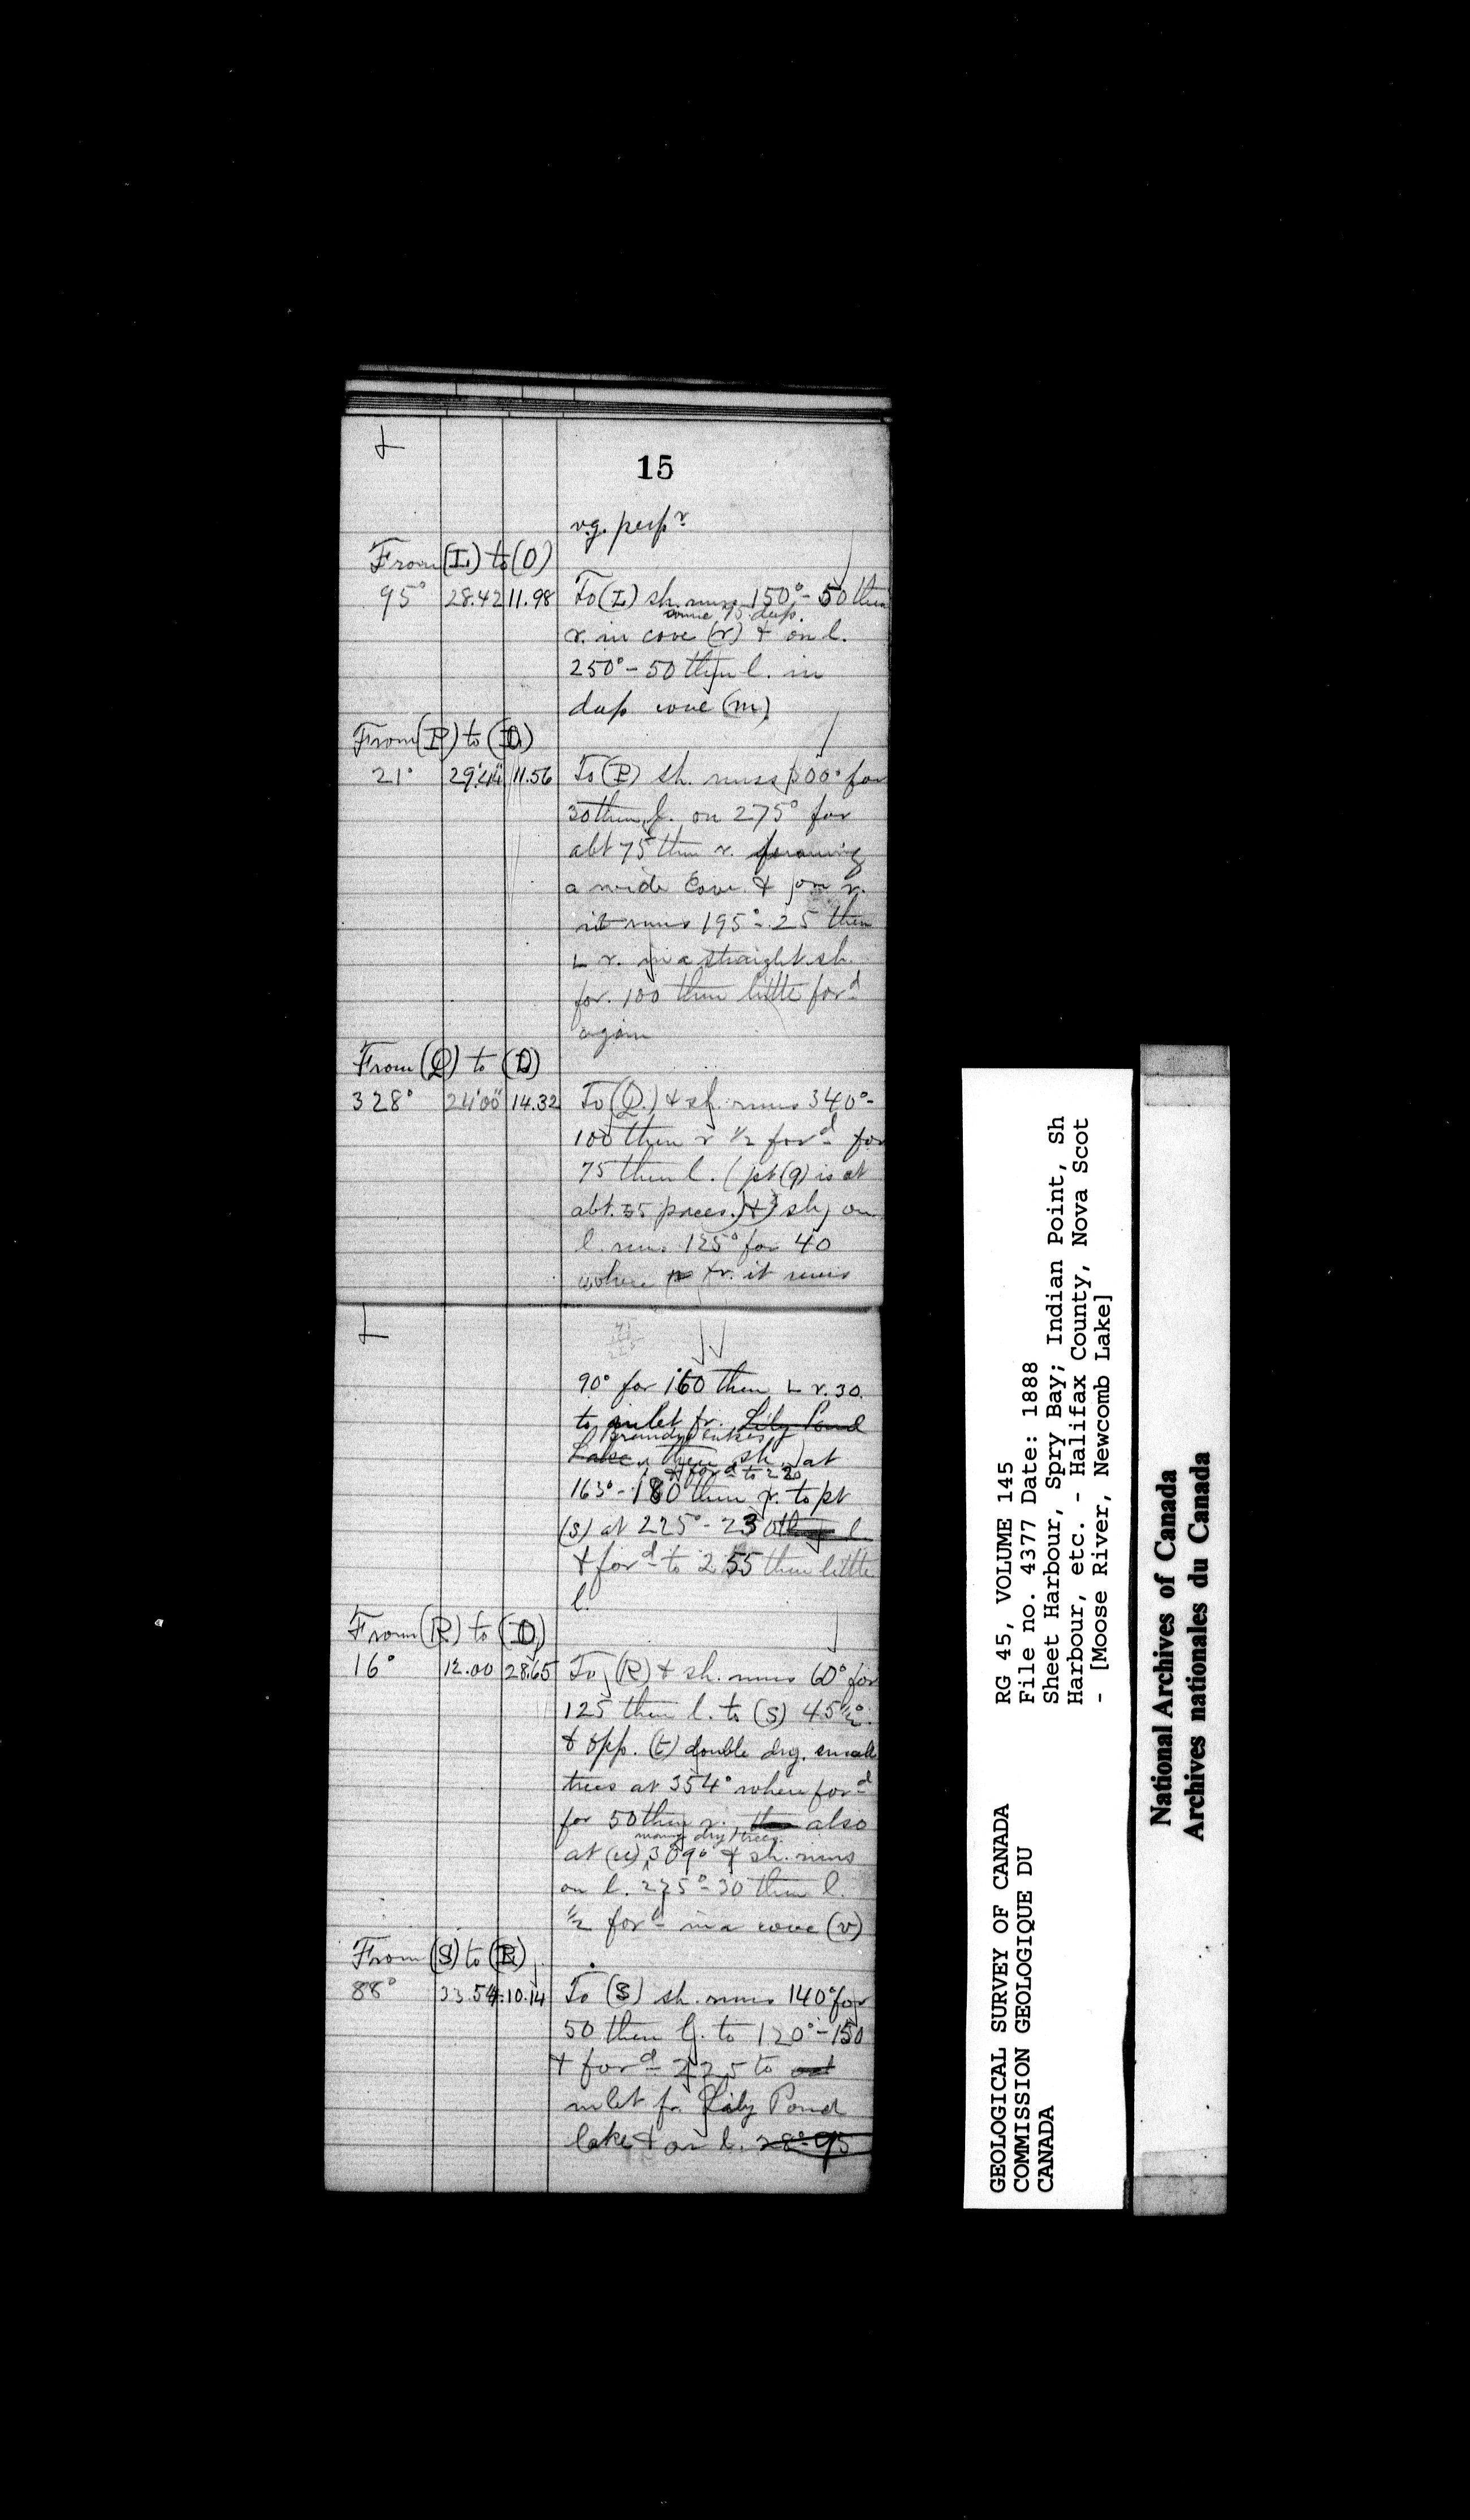 15
v.g. perpr
From (L) to (O)
95° 28.42 11.98 To (L) sh. runs 150°-50 then
some 75 deep.
r. in cove (r) & on l.
250°-50 then l. in
deep cove (m)
From (P) to (O)
21° 29'44" 11.56 To (P) sh. runs 300° for
30 then l. on 275° for
abt 75 then r. forming
a wide cove & on r.
it runs 195°-25 then
L r. in a straight sh.
for 100 then little ford
again
From (Q) to (D)
328° 24'00" 14.32 To (Q) & sh. runs 340°-
100 then r ½ ford for
75 then l. (pt (q) is at
abt. 35 paces.) & sh. on
l. runs 125° for 40
where & r. it runs
90° for 160 then L r. 30
to inlet fr. Lily Pond
Brandy Lakes
Lake then sh. at
& ford to 220
163°-180 then r. to pt
(s) at 225°-230 then l
& ford to 255 then little
l.
From (R) to (D)
16° 12.00 28.65 To (R) & sh. runs 60° for
125 then l. to (S) 45½°
& opp. (t) double drg. small
trees at 354° where ford
for 50 then r. then also
many dry trees
at (u) 309° & sh. runs
on l. 275°-30 then l.
½ ford in a cove (v)
From (S) to (R)
88° 33.54 10.14 To (S) sh. runs 140° for
50 then l. to 120°-150
& ford 225 to
inlet fr. Lily Pond
lake & on l. 28°-95
GEOLOGICAL SURVEY OF CANADA
COMMISSION GEOLOGIQUE DU
CANADA
RG 45, VOLUME 145
File no. 4377 Date: 1888
Sheet Harbour, Spry Bay; Indian Point, Sh
Harbour, etc. - Halifax County, Nova Scot
- [Moose River, Newcomb Lake]
National Archives of Canada
Archives nationales du Canada